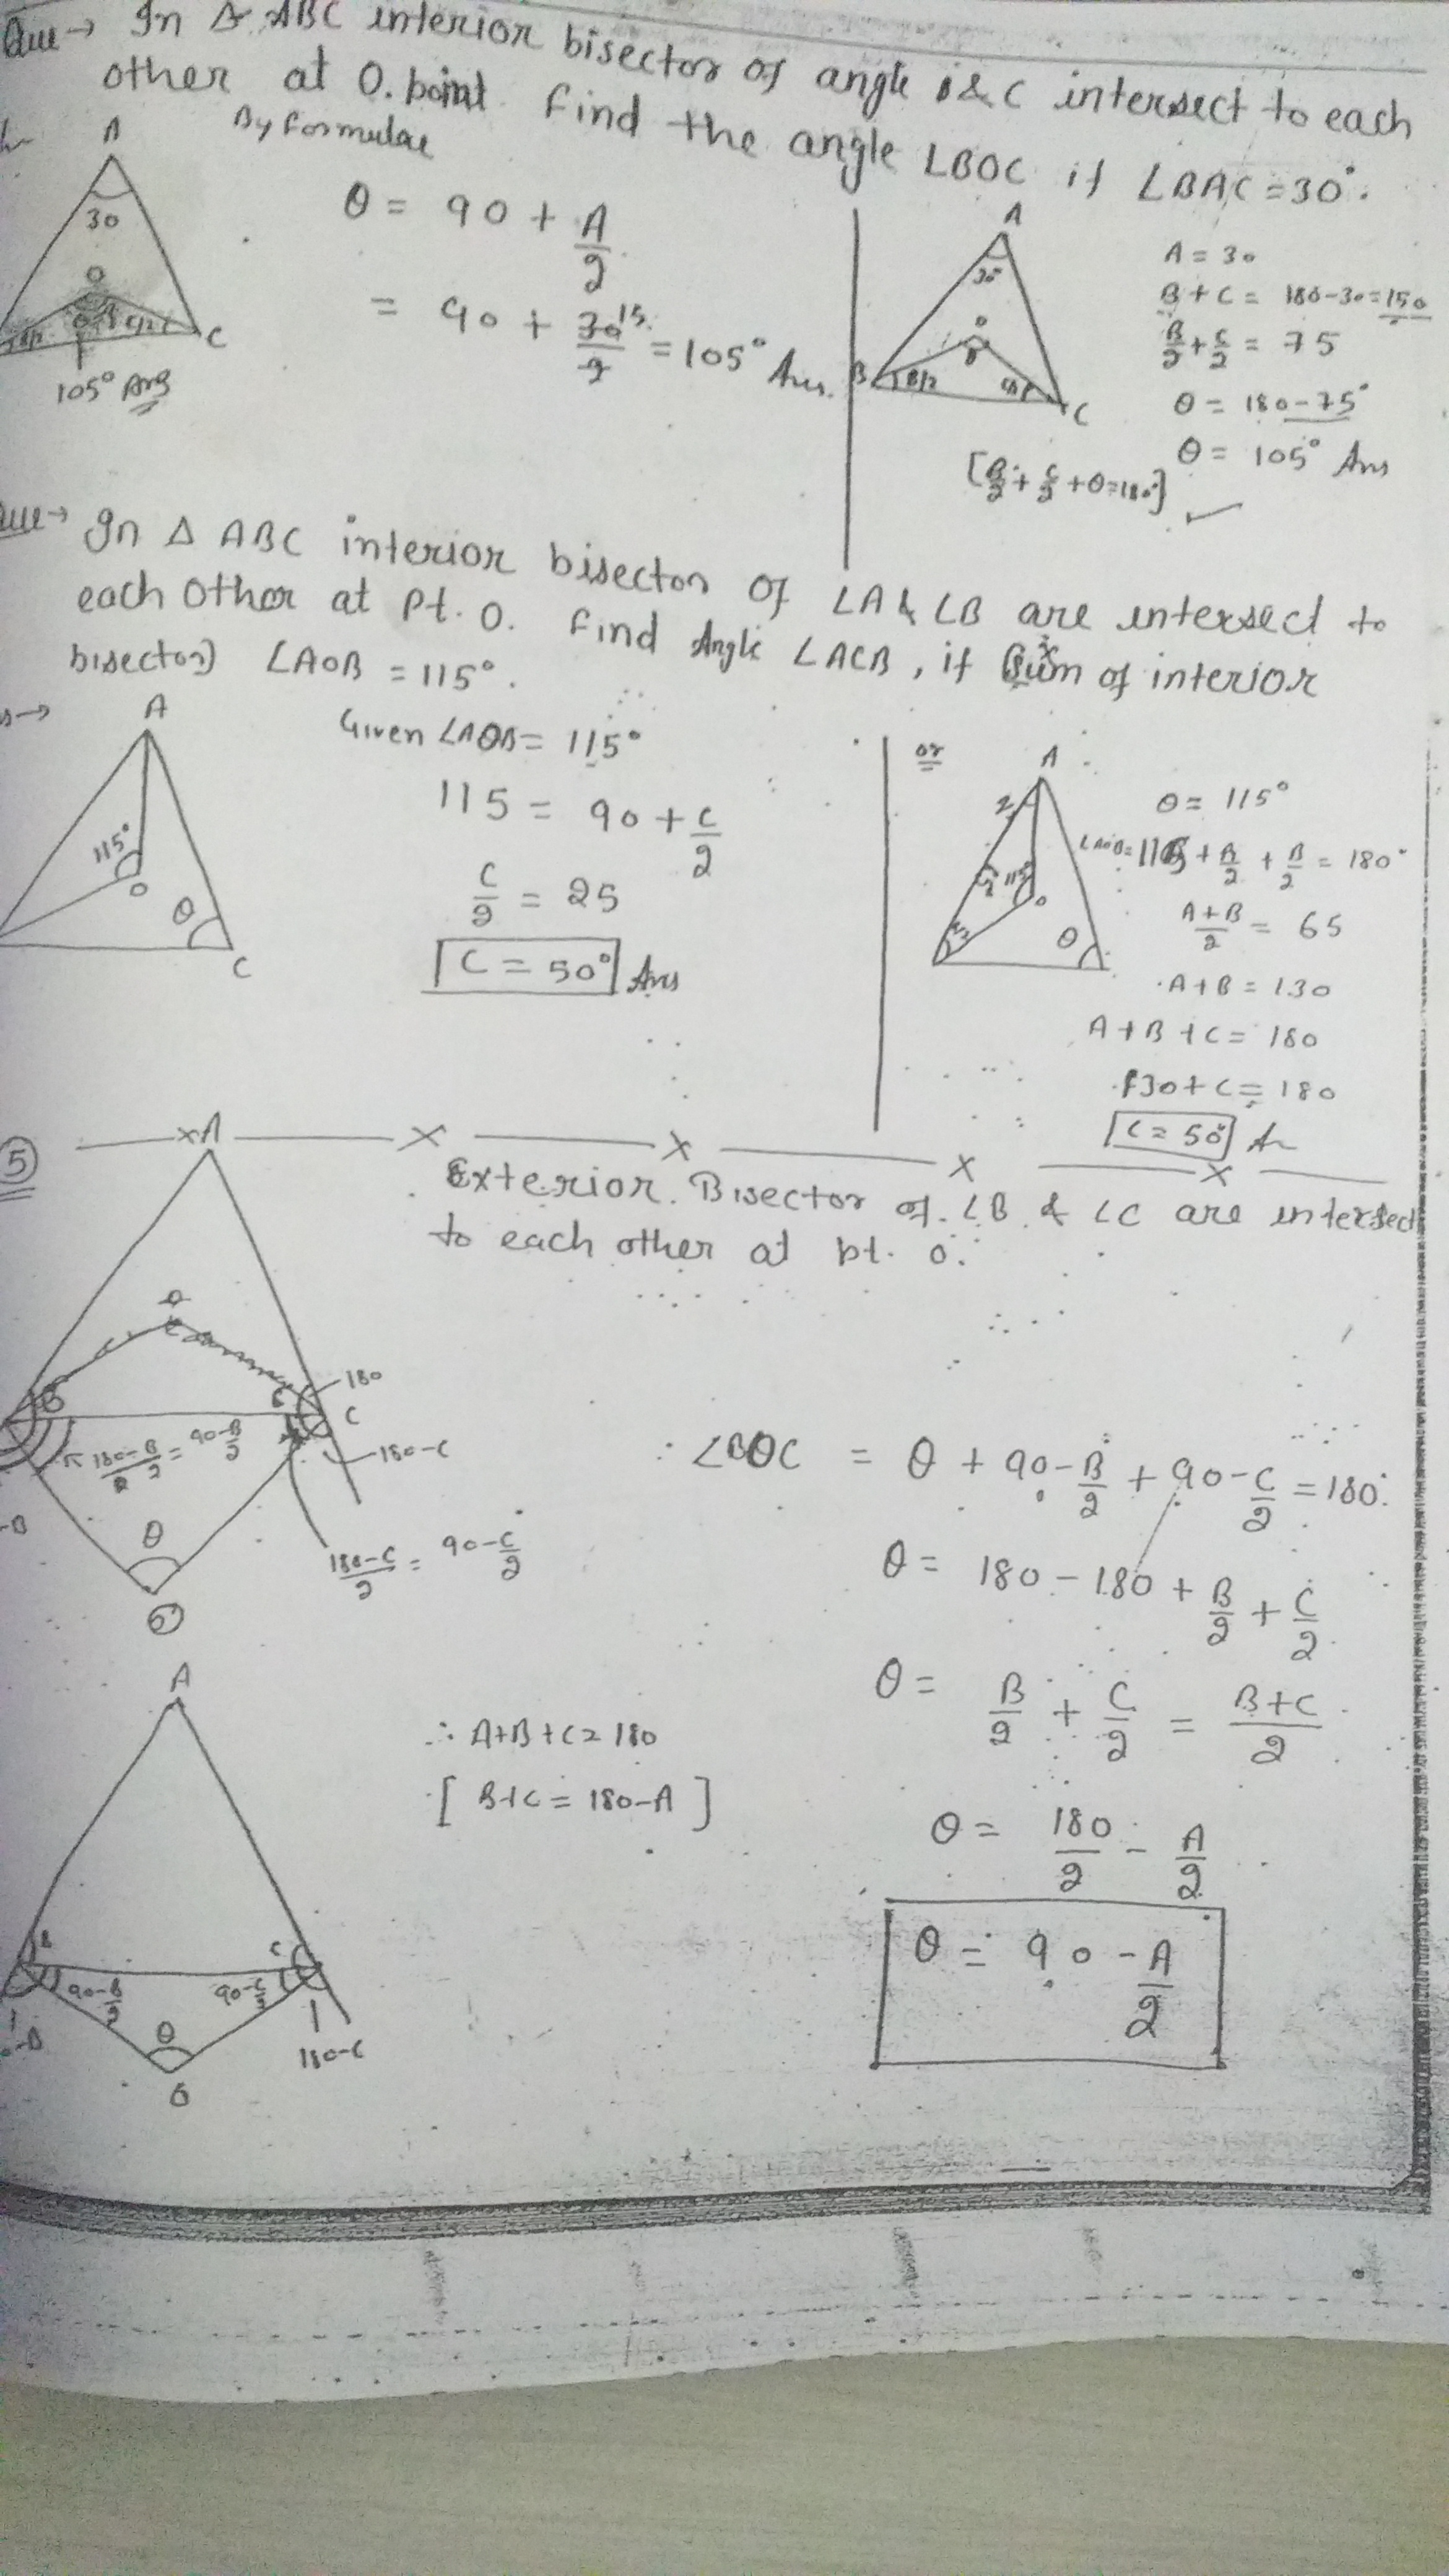 Que → In Δ ABC interior bisector of angle B & C intersect to each
other at O. point. Find the angle ∠BOC if ∠BAC = 30°.
By Formulae
A
30
O
B/2
C/2
C
105° Ans
θ = 90 + A/2
= 90 + 30/2 15 = 105° Ans.
A
30
O
θ
B
B/2
C/2
C
A = 30
B + C = 180 - 30 = 150
B/2 + C/2 = 75
θ = 180 - 75°
θ = 105° Ans
[B/2 + C/2 + θ = 180°]
Que → In Δ ABC interior bisector of ∠A & ∠B are intersect to
each other at Pt. O. Find Angle ∠ACB, if Sum of interior
bisector) ∠AOB = 115°.
A
115°
O
θ
C
Given ∠AOB = 115°
115 = 90 + C/2
C/2 = 25
C = 50° Ans
or
A
115
O
θ
θ = 115°
∠AOB = 115 + A/2 + B/2 = 180°
A+B/2 = 65
A + B = 130
A + B + C = 180
130 + C = 180
C = 50° An
5
Exterior. Bisector of ∠B & ∠C are intersect
to each other at pt. O.
A
B
C
180
C
180-B/2 = 90-B/2
180-C
-B
θ
O
180-C/2 = 90-C/2
∴ ∠BOC = θ + 90 - B/2 + 90 - C/2 = 180°
θ = 180 - 180 + B/2 + C/2
θ = B/2 + C/2 = B+C/2
∴ A+B+C = 180
[B+C = 180-A]
θ = 180/2 - A/2
θ = 90 - A/2
A
B
C
90-B/2
90-C/2
-B
θ
180-C
O